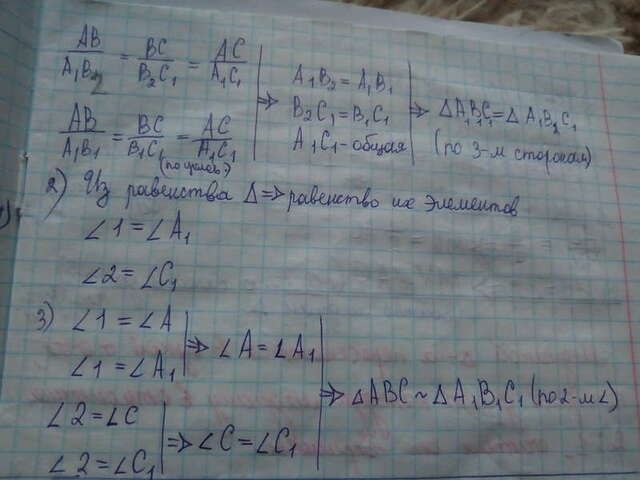 AB/A₁B₂ = BC/B₂C₁ = AC/A₁C₁
AB/A₁B₁ = BC/B₁C₁ = AC/A₁C₁
(по услов)
⇒ A₁B₂ = A₁B₁
B₂C₁ = B₁C₁
A₁C₁ - общая
⇒ ΔA₁B₁C₁ = ΔA₁B₂C₁
(по 3-м сторонам)
2) Из равенства Δ ⇒ равенство их элементов
∠1 = ∠A₁
∠2 = ∠C₁
3) ∠1 = ∠A
∠1 = ∠A₁
⇒ ∠A = ∠A₁
∠2 = ∠C
∠2 = ∠C₁
⇒ ∠C = ∠C₁
⇒ ΔABC ~ ΔA₁B₁C₁ (по 2-м ∠)